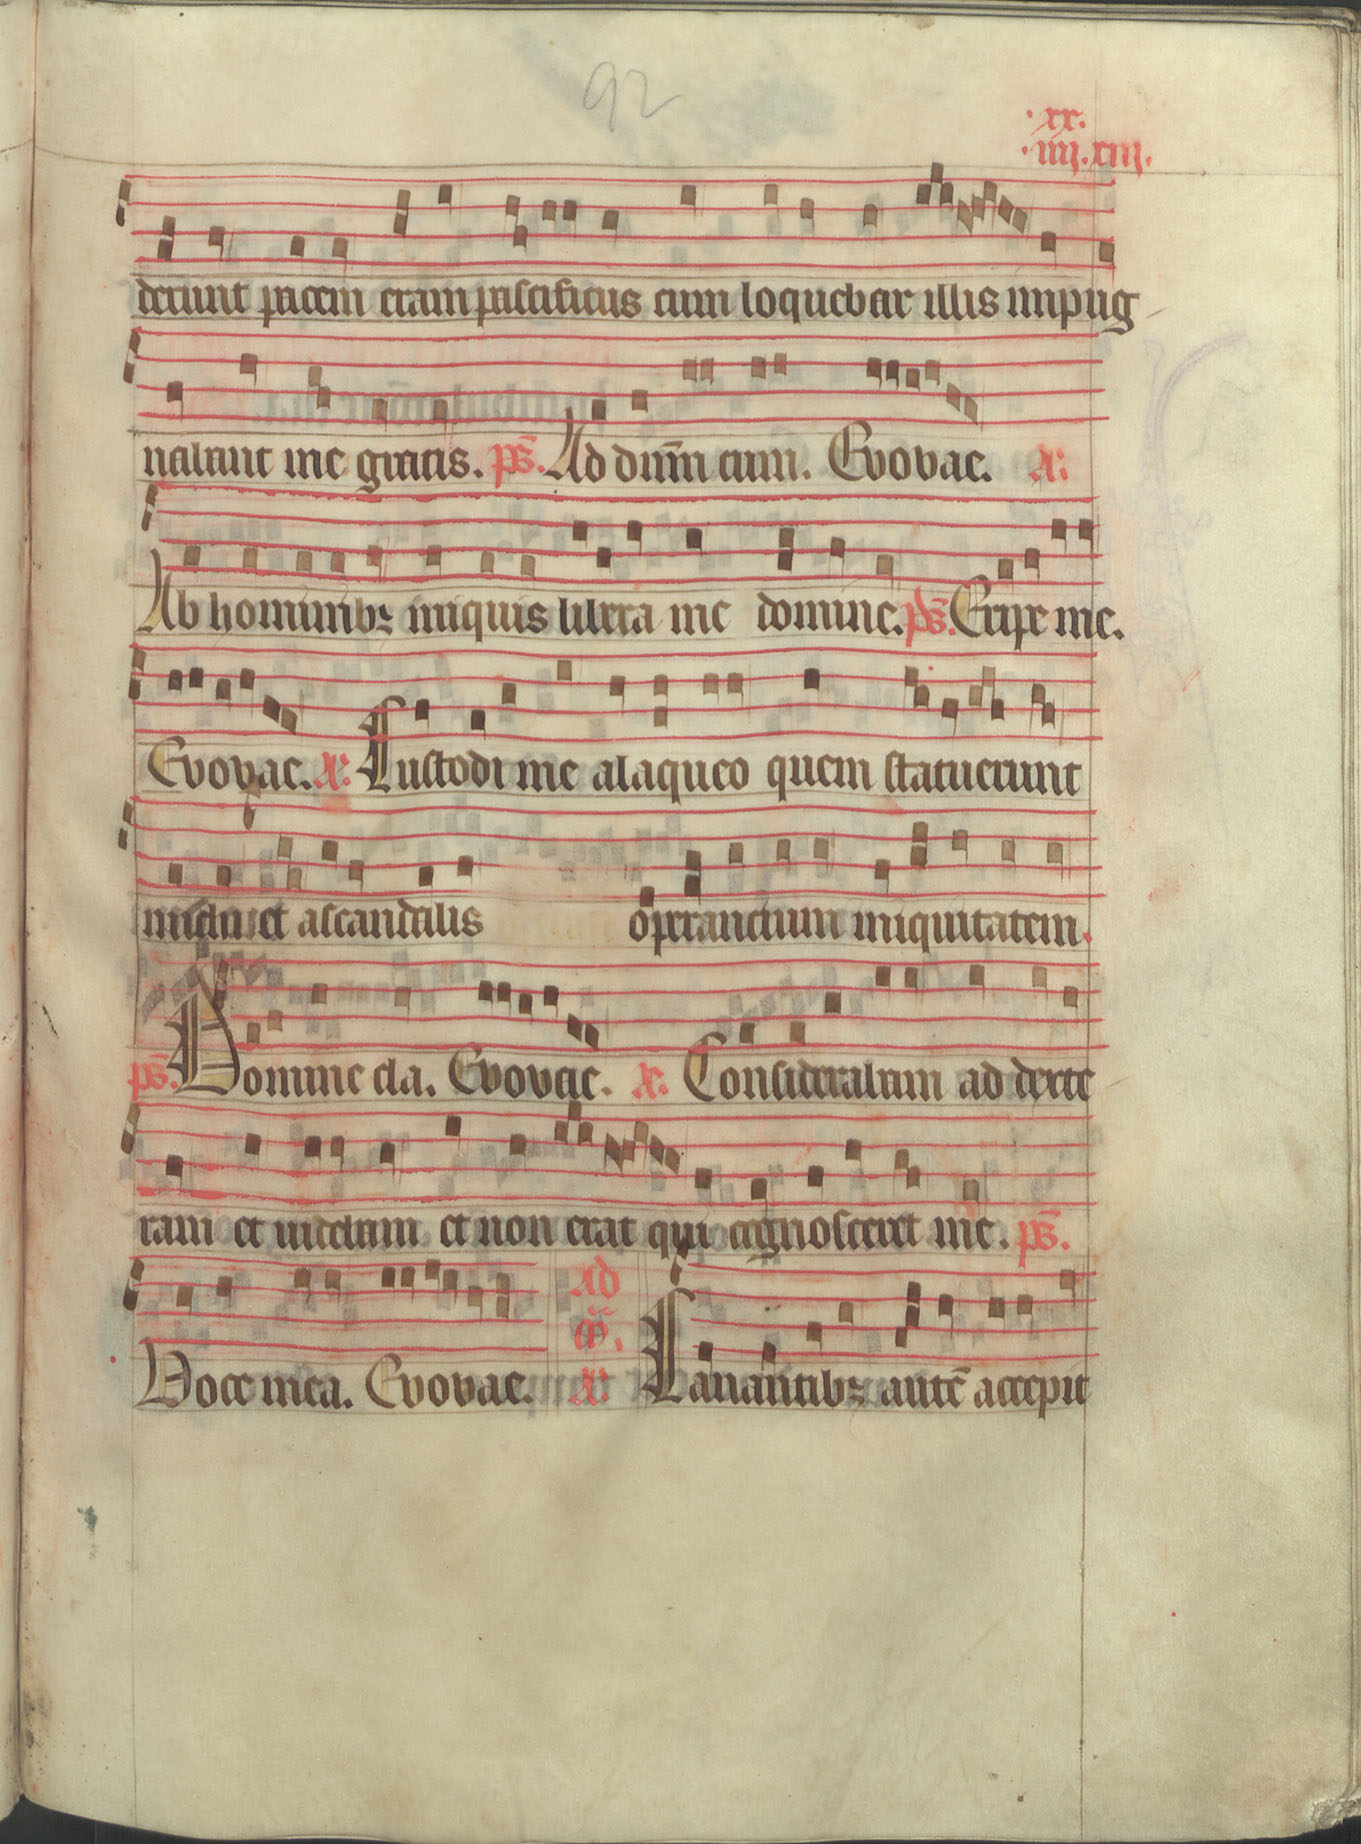 92
·xx.
·iiij.xiij.
derunt pacem eram pascificus cum loquebar illis inpug
nabant me gratis. ps̄. Ad dn̄m cum. Evovae. A:
Ab hominibꝫ iniquis libera me domine. ps̄. Eripe me.
Evovae. A: Custodi me alaqueo quem statuerunt
michi et ascandalis operancium iniquitatem.
ps̄. Domine cla. Evovae. A: Considerabam ad dexte
ram et videbam et non erat qui cognosceret me. ps̄.
Ad
m̄.
Voce mea. Evovae. A: Cenantibꝫ autē accepit